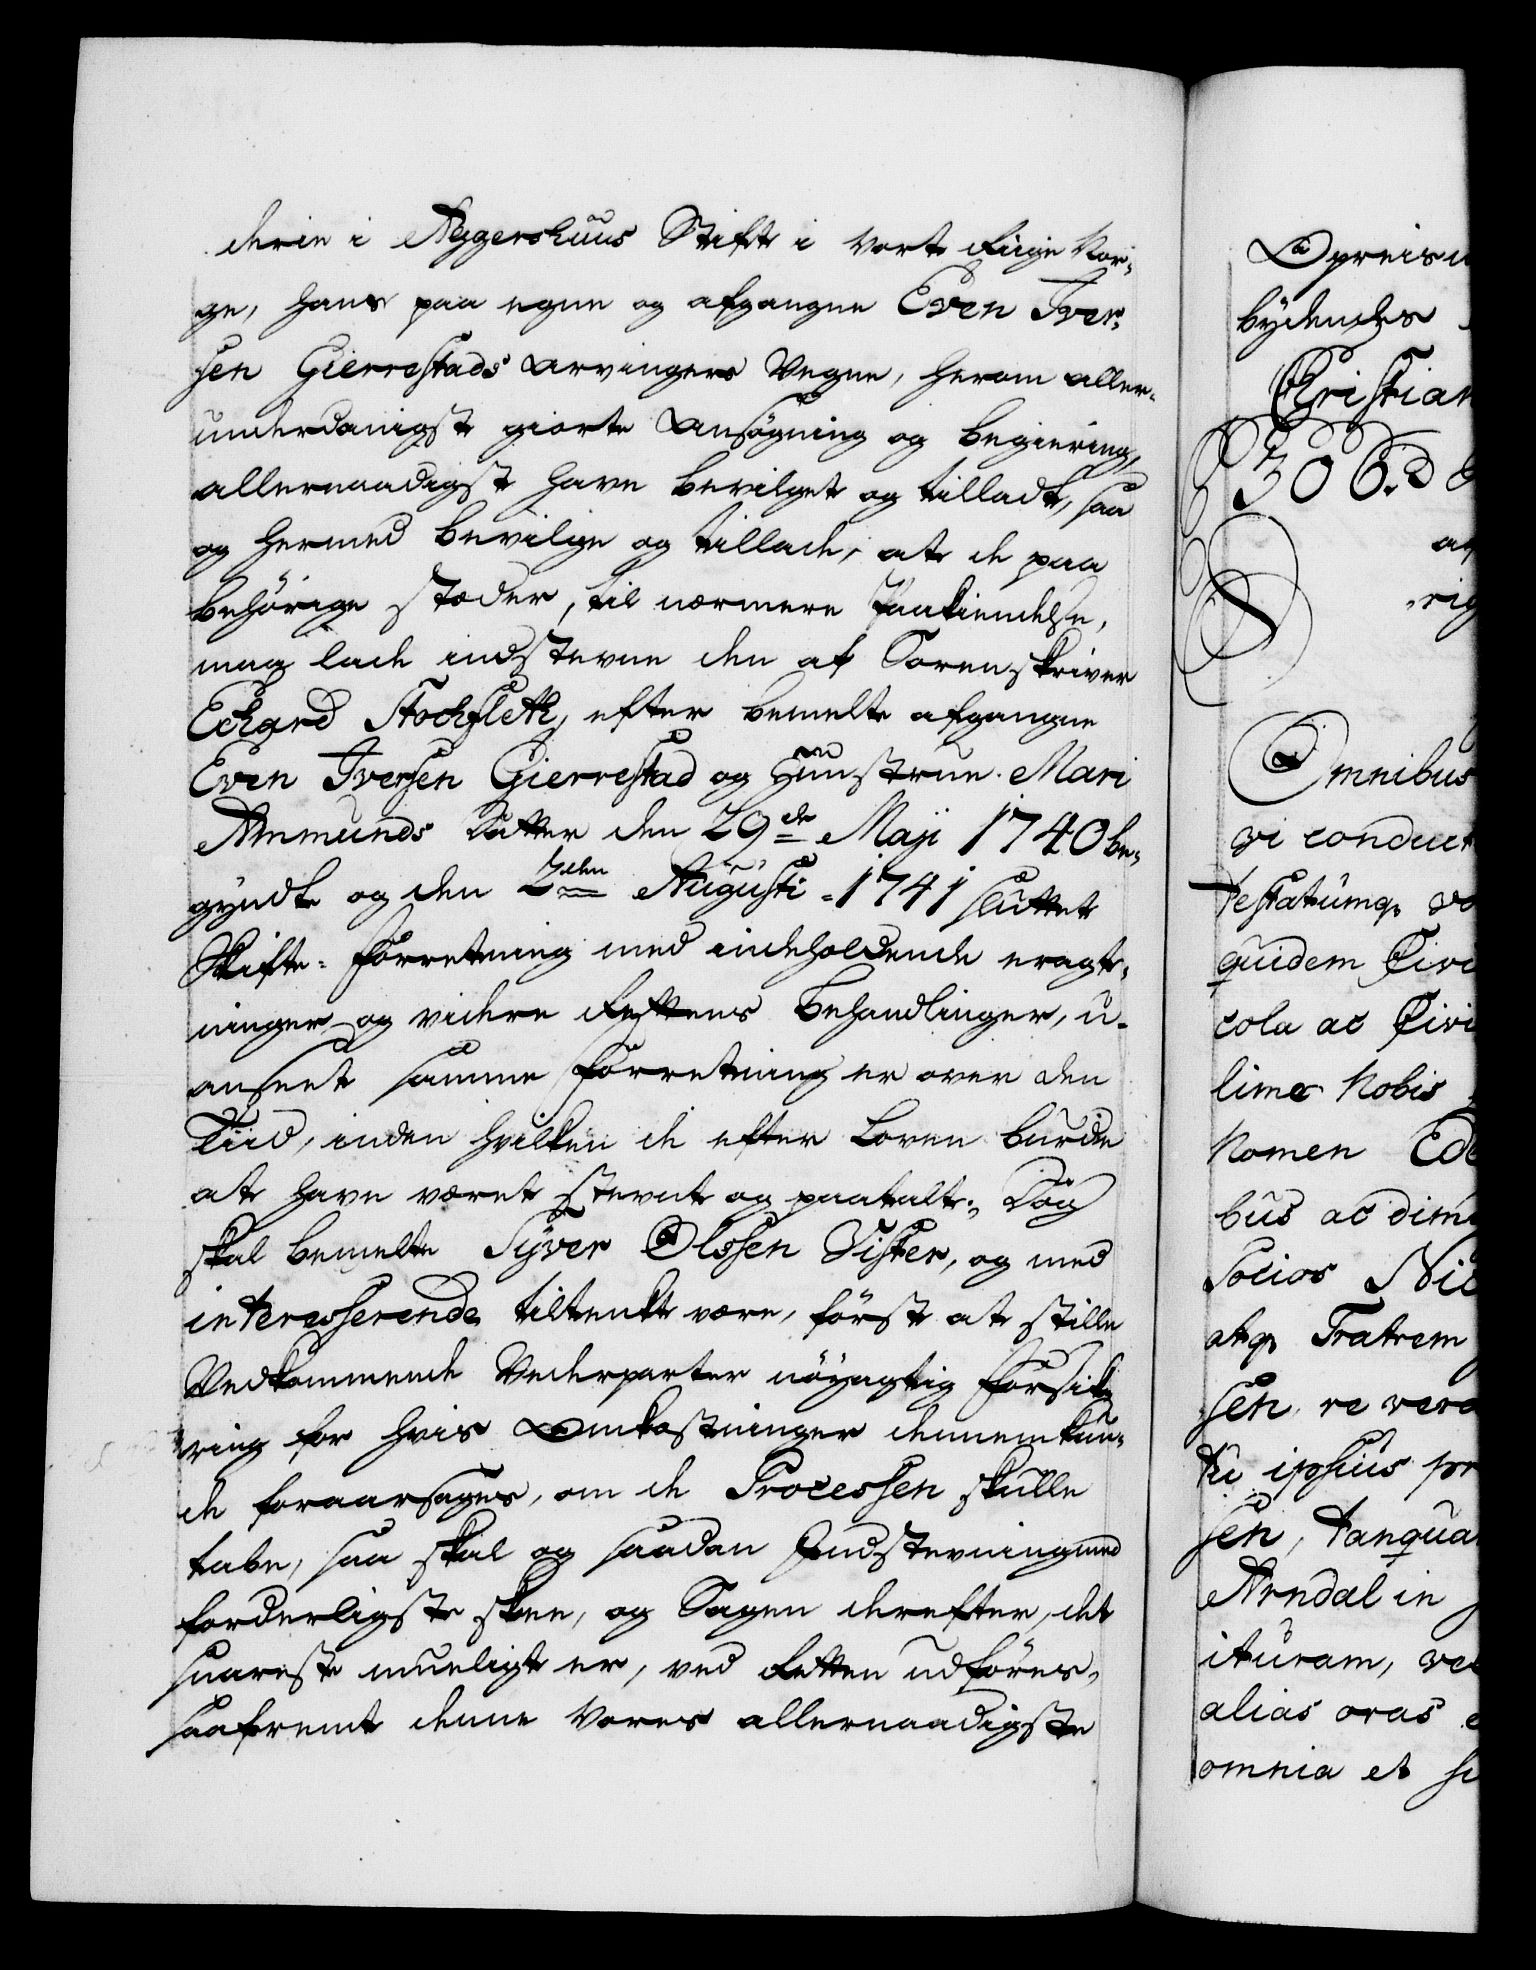 derie i Aggershuus Stift i vort Riige Nor-
ge, hans paa egne og afgangne Even Iver-
sen Gierrestads Arvingers Vegne, herom aller-
underdanigst giorte Ansøgning og begiering,
allernaadigst have bevilget og tilladt, saa
og hermed bevilge og tillade, at de paa
behörige stæder, til nærmere Paakiendelse,
maa lade indstevne den af Sorenskriver
Echard Stochfleth, efter bemelte afgangne
Even Iversen Gierrestad og Hunstrue Mari
Ammunds Datter den 29de Maji 1740 be-
gyndte og den 2den Augusti 1741 sluttet
Skifte-Forretning med indeholdende eragt-
ninger og videre Rettens Behandlinger, u-
anseet samme Forretning er over den
Tiid, inden hvilken de efter Loven burde
at have været stevnt og paatalt; Dog
skal bemelte Syver Olssen Vister, og med
interesserende tiltenkt være, först at stille
Vedkommende Vederparter nöyagtig Forsik-
ring for hvis Omkostninger dennem kun-
de foraarsages, om de Processen skulle
tabe, saa skal og saadan Indstevning med
forderligste skee, og Sagen derefter, det
snareste mueligt er, ved Retten udföres,
saafremt denne Vores allernaadigste
Opreisn
bydendes
Christian
306.
Omnibus
vi conduct
testatumqe vo
quidem Civi
cola ac Civi
limæ Nobis
Nomen Ede
bus ac dim
Socios Nic
atqe Fratrem
sen, re vera
tu ipsius pr
sen, tanqua
Arndal in
ituram, ve
alias oras
omnia et si